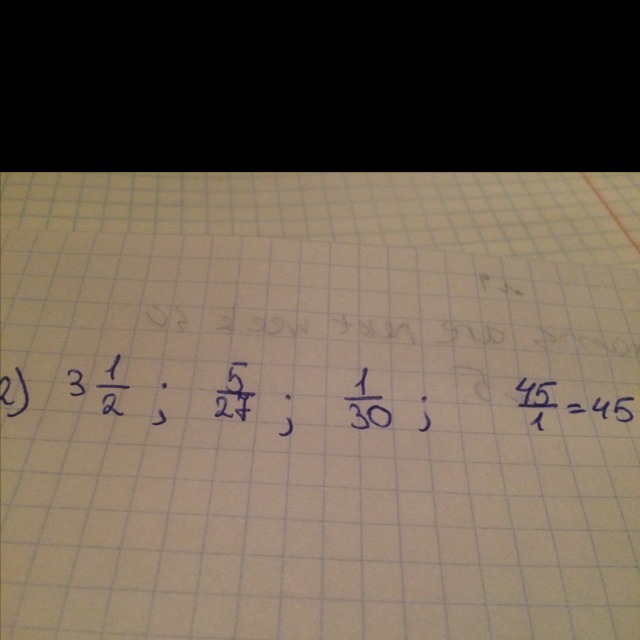 2) 3 1/2 ; 5/27 ; 1/30 ; 45/1 = 45